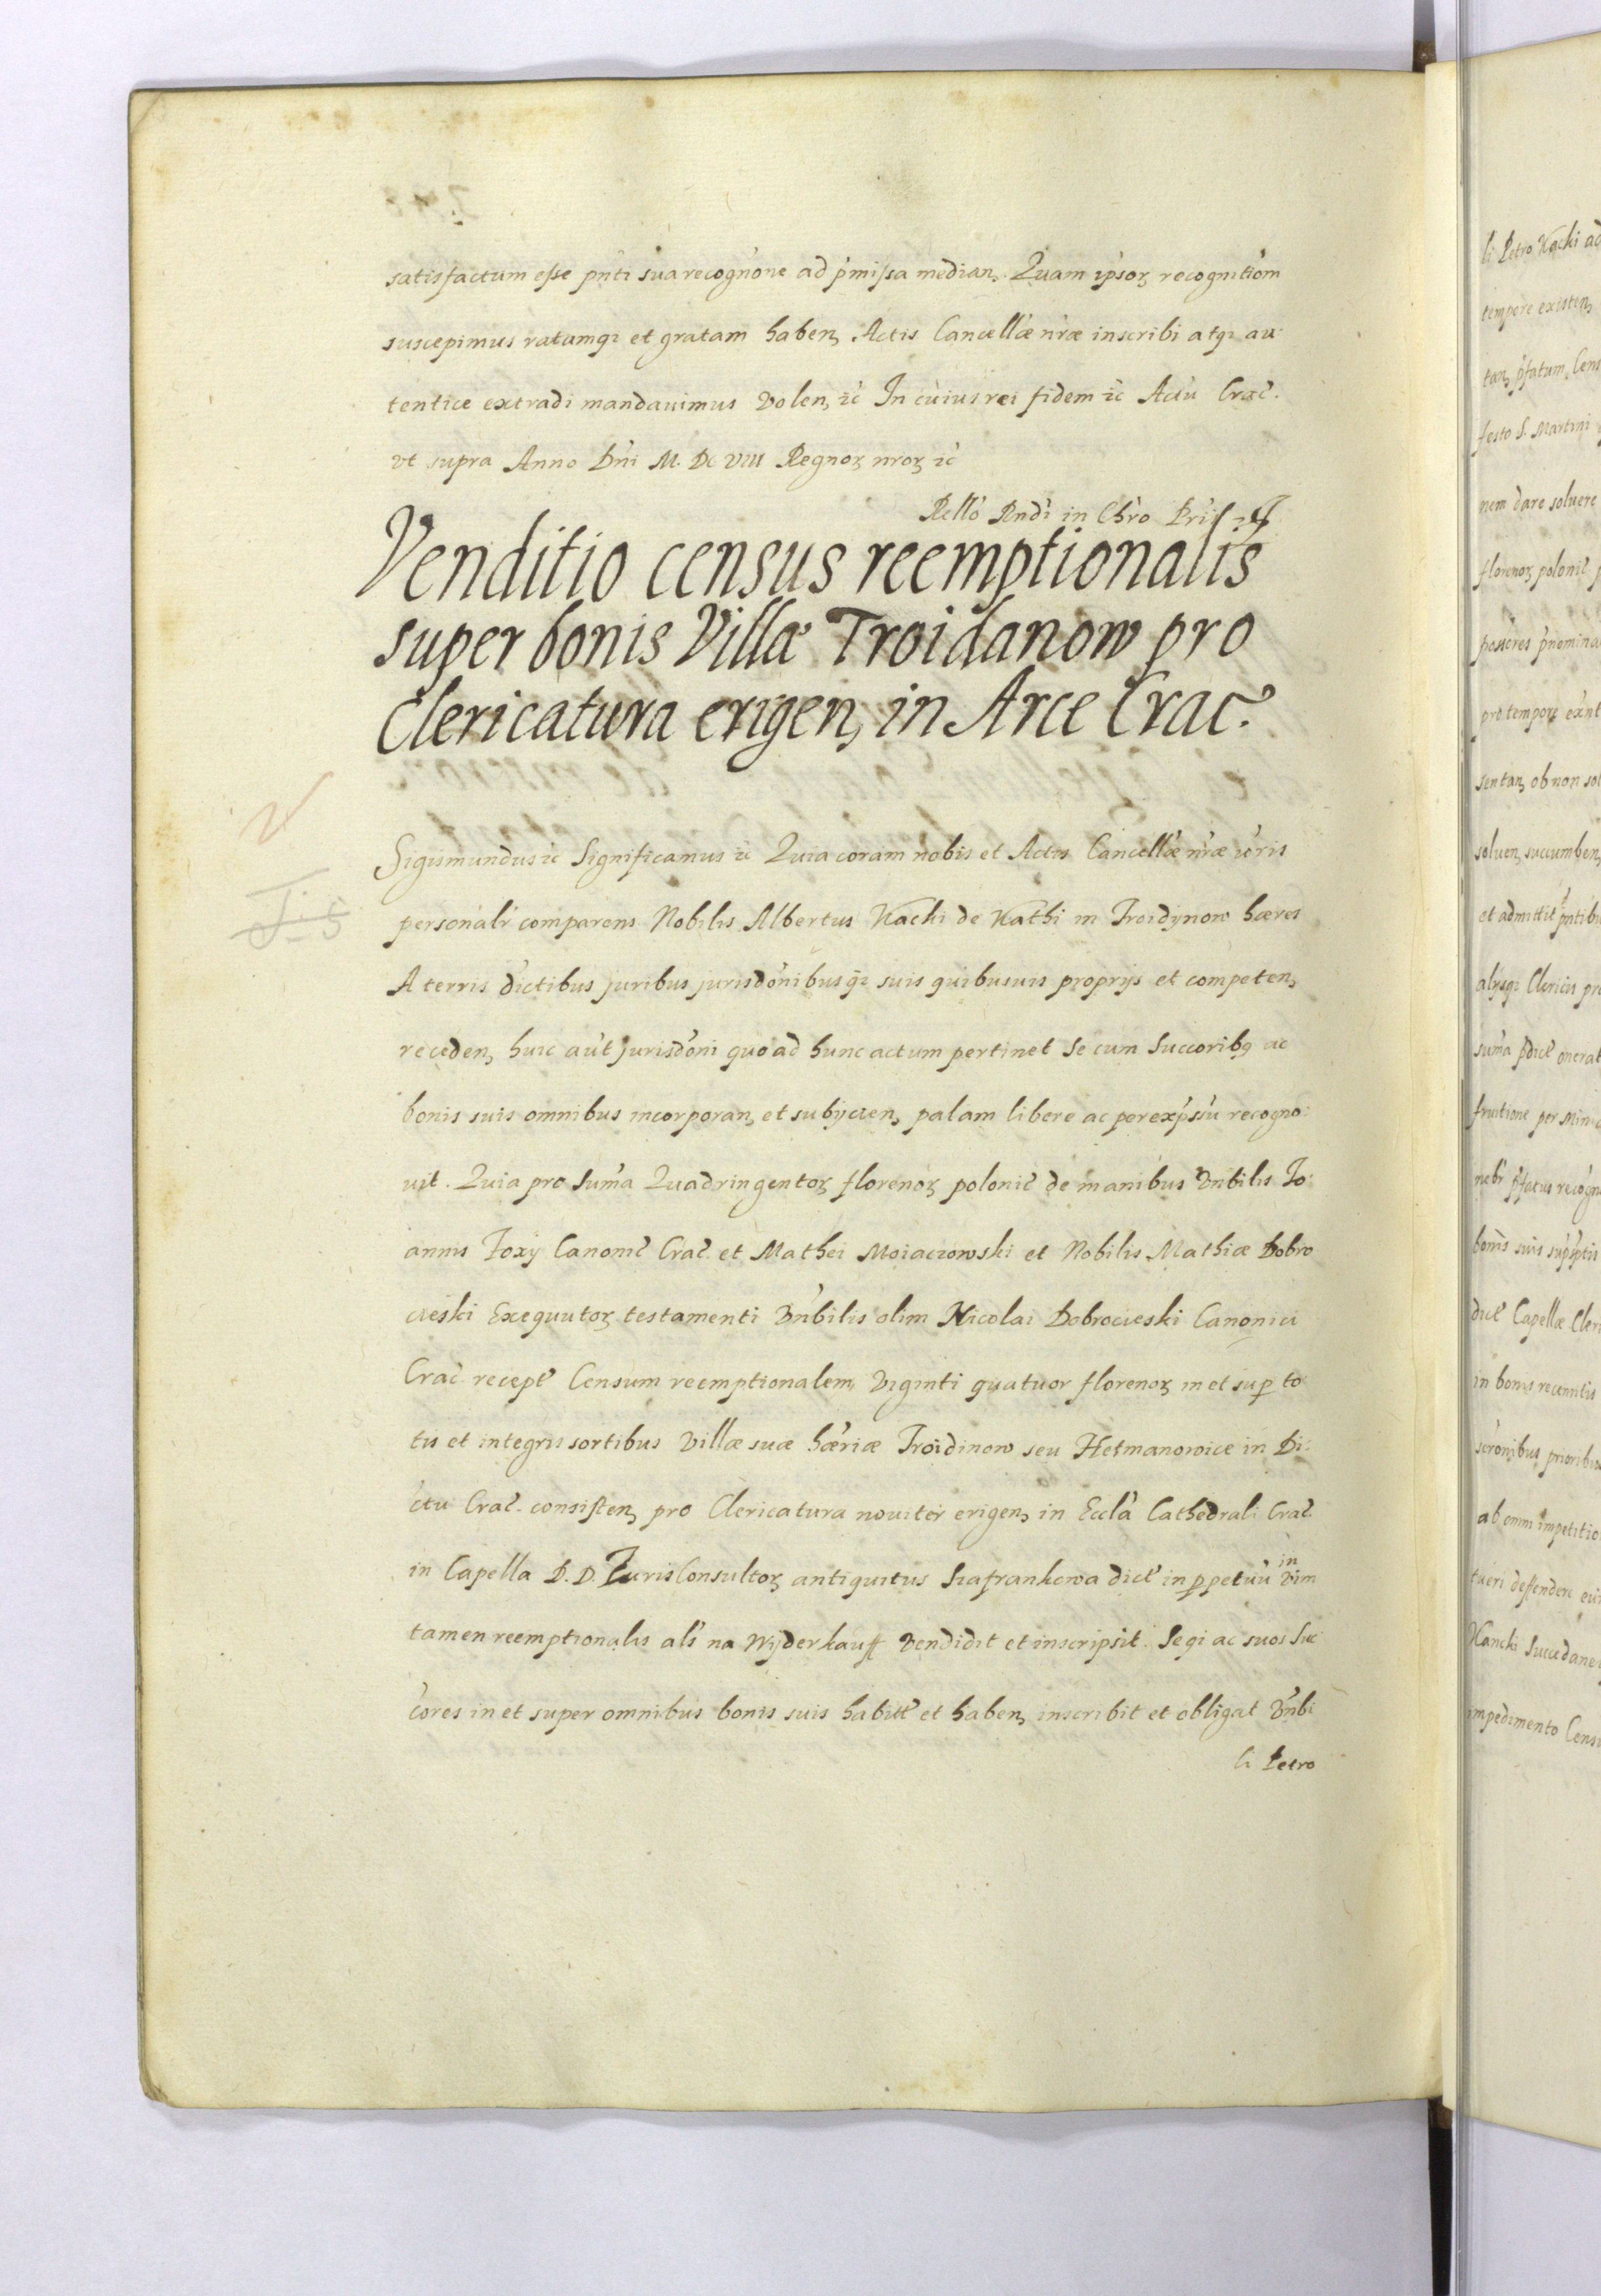 satisfactum esse pn̄ti sua recogn̄one ad p̄missa median, Quam ipsoꝝ recognitiōm
suscepimus ratamqꝫ et gratam haben, Actis Cancellæ nr̄æ inscribi atqꝫ au
tentice extradi mandauimus volen, ꝛc̄ In cuius rei fidem ꝛc̄ Actū Crac̄.
vt supra Anno Dn̄i M. DC VIII Regnoꝝ nroꝝ ꝛc̄
Rellō Rndi in Chr̄o Pris ꝛc
Venditio census reemptionalis
super bonis Villæ Troidanow pro
Clericatura erigen, in Arce Crac̄.
Sigismundus ꝛc̄ Significamus ꝛc̄ Quia coram nobis et Actis Cancellæ nr̄æ vr̄is
personalr̄ comparens Nobilis Albertus Kącki de Kathi in Troidynow hæres
A terris dictibus juribus jurisdōnibusqꝫ suis quibusuis proprijs et competen,
receden, huic aut̄ jurisdōni quo ad hunc actum pertinet se cum Succoribꝫ ac
bonis suis omnibus incorporan, et subijcien, palam libere ac per exp̄ssū recogno:
uit. Quia pro sum̄a Quadringentoꝝ florenoꝝ polonic̄ de manibus Vn̄bilis Jo:
annis Foxij Canonic̄ Crac̄. et Mathei Moiaczowski et Nobilis Mathiæ Dobro
cieski Exequutoꝝ testamenti Vn̄bilis olim Nicolai Dobrocieski Canonici
Crac̄. recept̄ Censum reemptionalem, Viginti quatuor florenoꝝ in et suꝑ to
tis et integris sortibus villæ suæ hæriæ Troidinow seu Hetmanowice in Di:
ctu Crac̄. consisten, pro Clericatura nouiter erigen, in Eccl̄a Cathedrali Crac̄
in Capella D. D. JurisConsultoꝝ antiquitus Szafrankowa dict̄ in ꝑpetuū in vim
tamen reemptionalis als̄ na Wyderkauff vendidit et inscripsit. Seqꝫ ac suos Suc
cores in et super omnibus bonis suis habitt̄ et haben, inscribit et obligat Vn̄bi
li Petro
li Petro Kącki ad
tempore existen,
tan, p̄fatum Cens
festo S. Martini
nem dare soluere
florenoꝝ polonic̄ p
pro tempore exn̄t
sentan, ob non sol
soluen, succumben,
et admittit pn̄tibu
alijsqꝫ Clericis pro
sum̄a pdict̄ onerat
fruitione per Minis
nebr̄ p̄fatus recogn
bonis suis supsptis
dict̄ Capellæ Cleri
in bonis recenntis
ab omni impetitio
tueri deffendere eui
Kancki Succedane
impedimento Cens